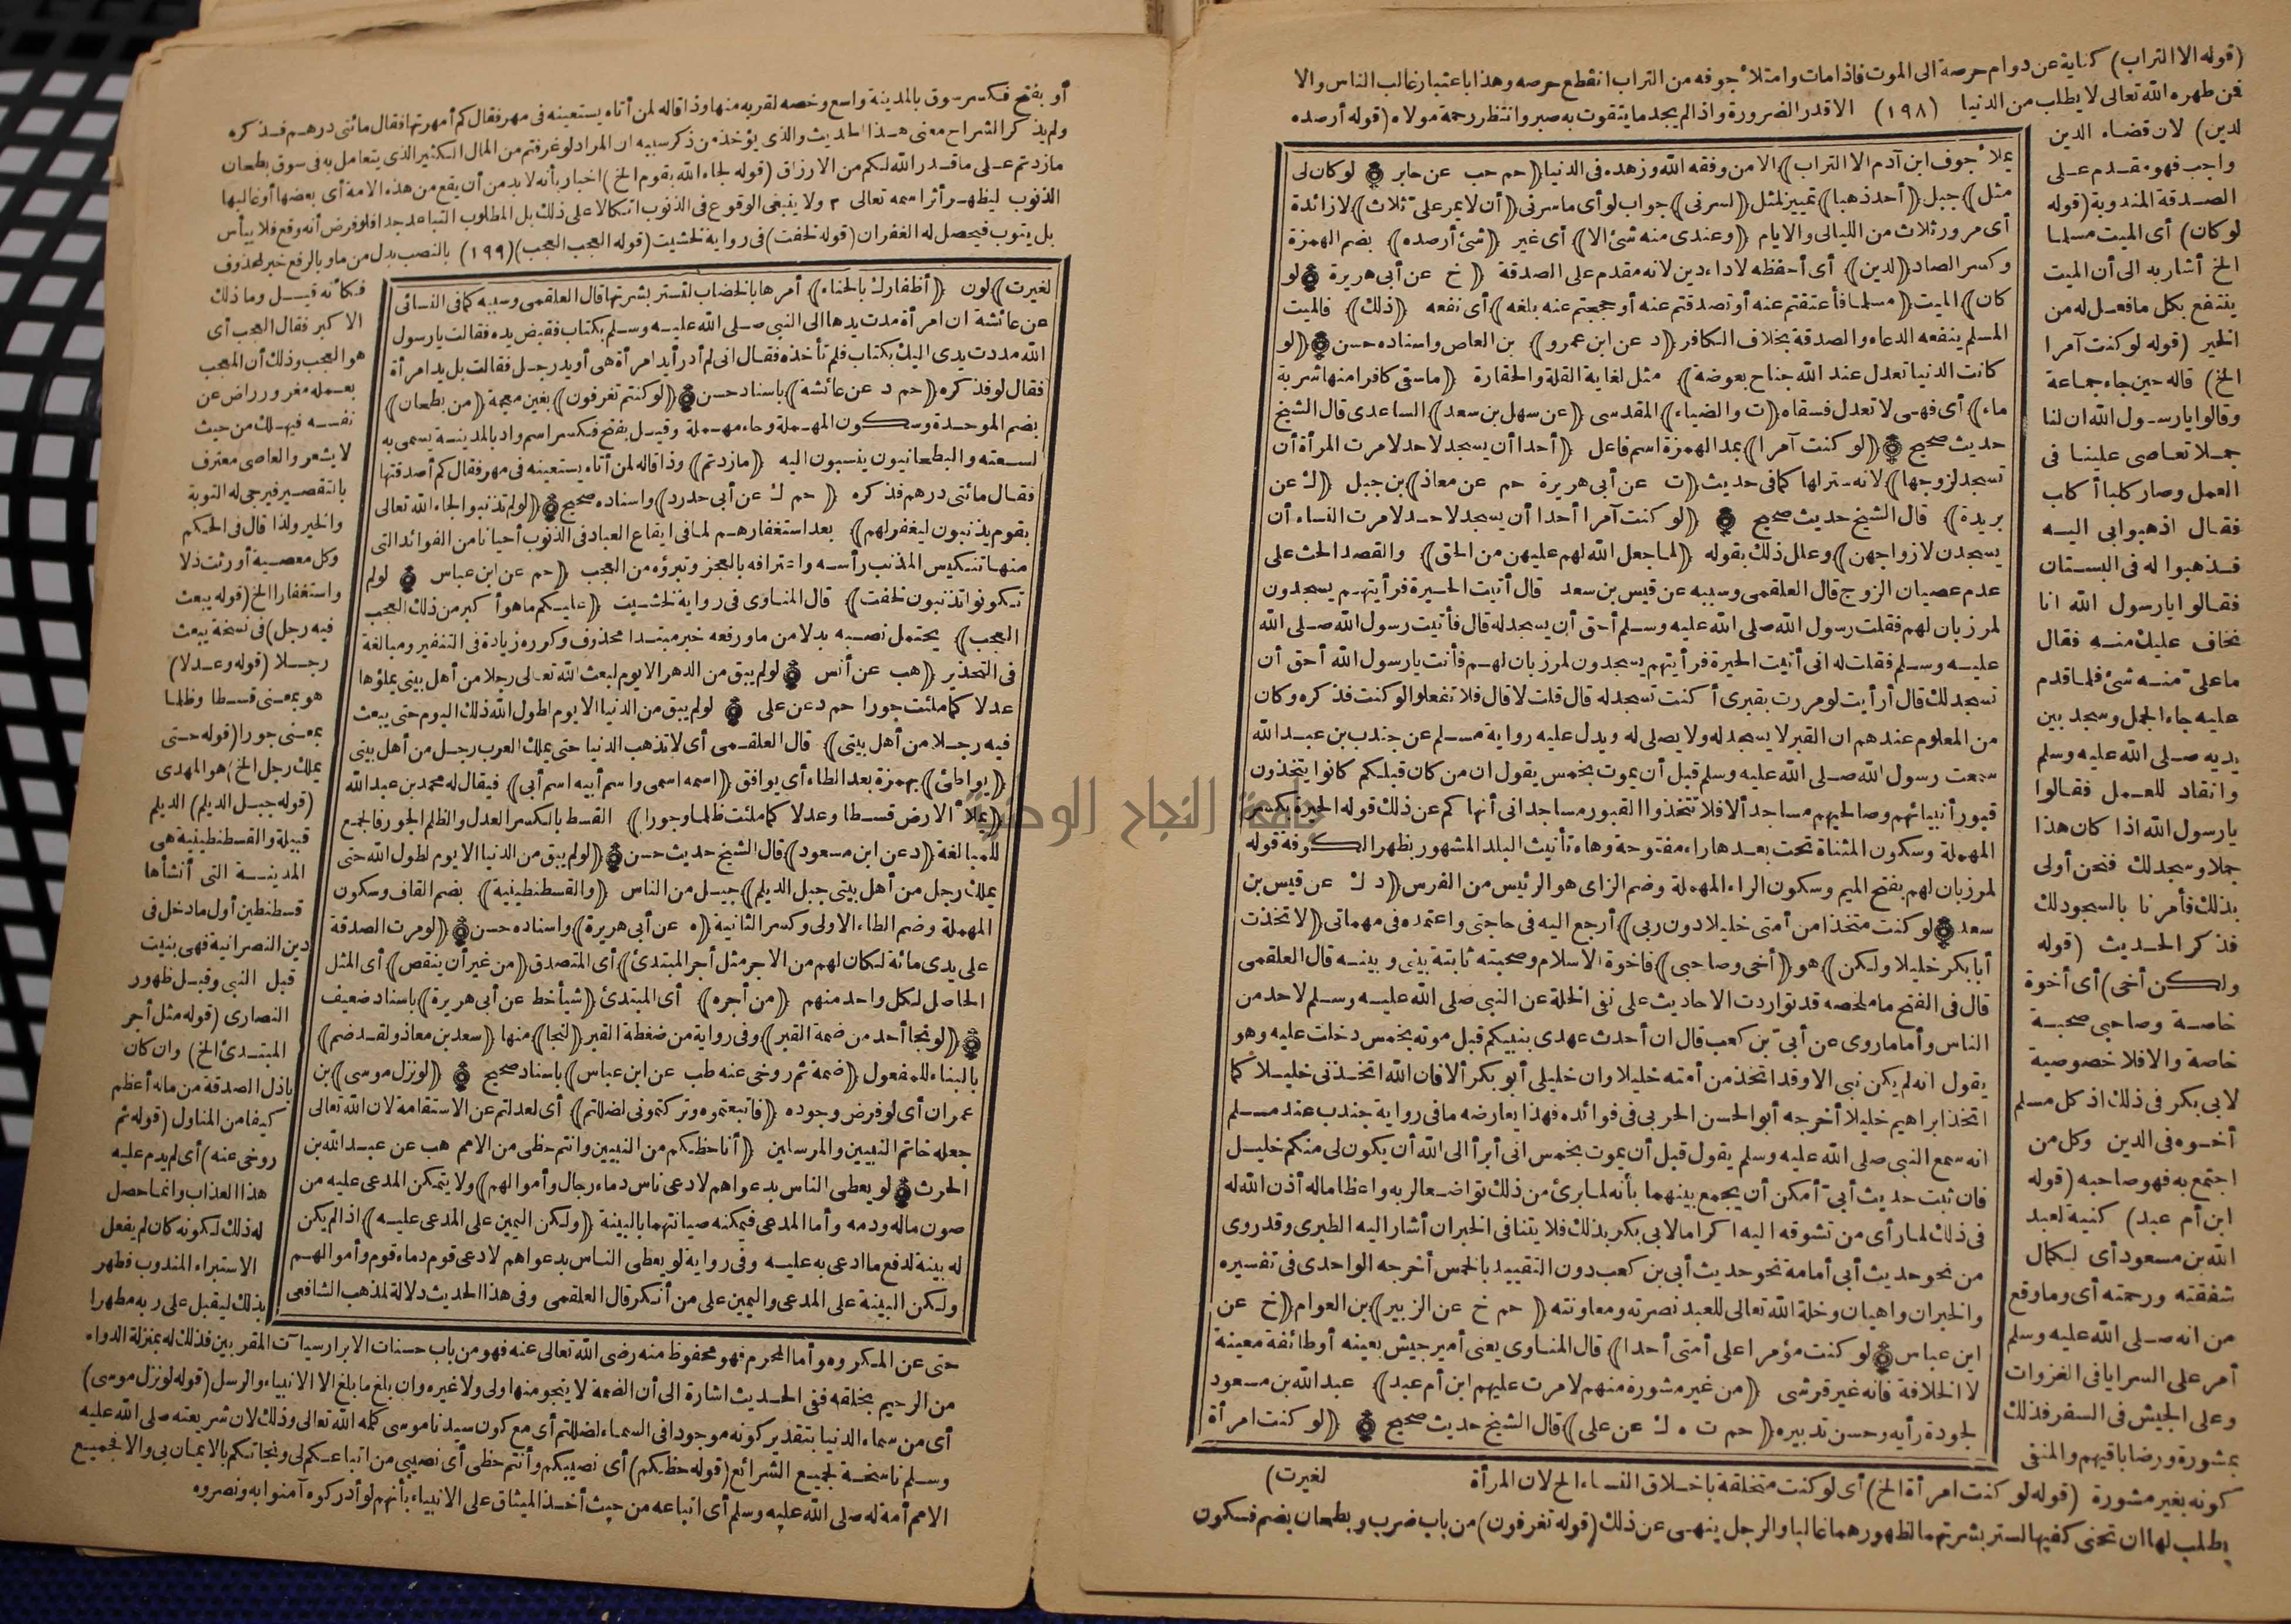 (قوله الا التراب) كناية عن دوام حرصه الى الموت فاذا مات وامتلأ جوفه من التراب انقطع حرصه وهذا باعتبار غالب الناس والا
فمن طهره الله تعالى لا يطلب من الدنيا (١٩٨) الا قدر الضرورة واذا لم يجد ما يتقوت به صبر وانتظر رحمة مولاه (قوله أرصده
لدين) لان قضاء الدين
واجب فهو مقدم على
الصدقة المندوبة (قوله
لو كان) أى الميت مسلما
الخ أشار به الى أن الميت
ينتفع بكل ما فعل له من
الخير (قوله لو كنت آمرا
الخ) قاله حين جاء جماعة
وقالوا يا رسول الله ان لنا
جملا تعاصى علينا فى
العمل وصار كلبا أكاب
فقال اذهبوا بى اليه
فذهبوا له فى البستان
فقالوا يا رسول الله انا
نخاف عليك منه فقال
ما علىّ منه شئ فلما قدم
عليه جاء الجمل وسجد بين
يديه صلى الله عليه وسلم
وانقاد للعمل فقالوا
يا رسول الله اذا كان هذا
جملا وسجد لك فنحن أولى
بذلك فأمرنا بالسجود لك
فذكر الحديث (قوله
ولكن أخى) أى أخوة
خاصة وصاحبى صحبة
خاصة والا فلا خصوصية
لابى بكر فى ذلك اذ كل مسلم
أخوه فى الدين وكل من
اجتمع به فهو صاحبه (قوله
ابن أم عبد) كنية لعبد
الله بن مسعود أى لكمال
شفقته ورحمته أى وما وقع
من انه صلى الله عليه وسلم
أمر على السرايا فى الغزوات
وعلى الجيش فى السفر فذلك
بمشورة ورضا باقيهم والمنفى
يملأ جوف ابن آدم الا التراب) الا من وفقه الله وزهده فى الدنيا (حم حب عن جابر لو كان لى
مثل) جبل (أحد ذهبا) تمييز لمثل (لسرنى) جواب لو أى ما سرنى (أن لا يمر علىّ ثلاث) لا زائدة
أى مرور ثلاث من الليالى والايام (وعندى منه شئ الا) أى غير (شئ أرصده) بضم الهمزة
وكسر الصاد (لدين) أى أحفظه لاداء دين لانه مقدم على الصدقة (خ عن أبى هريرة لو
كان) الميت (مسلما فأعتقتم عنه أو تصدقتم عنه أو حججتم عنه بلغه) أى نفعه (ذلك) فالميت
المسلم ينفعه الدعاء والصدقة بخلاف الكافر (د عن ابن عمرو) بن العاص واسناده حسن (لو
كانت الدنيا تعدل عند الله جناح بعوضة) مثل لغاية القلة والحقارة (ما سقى كافرا منها شربة
ماء) أى فهى لا تعدل فسقاه (ت والضياء) المقدسى (عن سهل بن سعد) الساعدى قال الشيخ
حديث صحيح (لو كنت آمرا) بمد الهمزة اسم فاعل (أحدا أن يسجد لاحد لامرت المرأة أن
تسجد لزوجها) لانه ستر لها كما فى حديث (ت عن أبى هريرة حم عن معاذ) بن جبل (ك عن
بريدة) قال الشيخ حديث صحيح (لو كنت آمرا أحدا أن يسجد لاحد لامرت النساء أن
يسجدن لازواجهن) وعلل ذلك بقوله (لما جعل الله لهم عليهن من الحق) والقصد الحث على
عدم عصيان الزوج قال العلقمى وسببه عن قيس بن سعد قال أتيت الحيرة فرأيتهم يسجدون
لمرزبان لهم فقلت رسول الله صلى الله عليه وسلم أحق أن يسجد له قال فأتيت رسول الله صلى الله
عليه وسلم فقلت له انى أتيت الحيرة فرأيتهم يسجدون لمرزبان لهم فأنت يا رسول الله أحق أن
نسجد لك قال أرأيت لو مررت بقبرى أكنت تسجد له قال قلت لا قال فلا تفعلوا لو كنت فذكره وكان
من المعلوم عندهم ان القبر لا يسجد له ولا يصلى له ويدل عليه رواية مسلم عن جندب بن عبد الله
سمعت رسول الله صلى الله عليه وسلم قبل أن يموت بخمس يقول ان من كان قبلكم كانوا يتخذون
قبور أنبيائهم وصالحيهم مساجد ألا فلا تتخذوا القبور مساجد انى أنهاكم عن ذلك قوله الحيرة بكسر
المهملة وسكون المثناة تحت بعدها راء مفتوحة وهاء تأنيث البلد المشهور بظهر الكوفة قوله
لمرزبان لهم بفتح الميم وسكون الراء المهملة وضم الزاى هو الرئيس من الفرس (د ك عن قيس بن
سعد لو كنت متخذا من أمتى خليلا دون ربى) أرجع اليه فى حاجتى واعتمده فى مهماتى (لاتخذت
أبا بكر خليلا ولكن) هو (أخى وصاحبى) فاخوة الاسلام وصحبته ثابتة بينى وبينه قال العلقمى
قال فى الفتح ما ملخصه قد تواردت الاحاديث على نفى الخلة عن النبى صلى الله عليه وسلم لاحد من
الناس وأما ما روى عن أبىّ بن كعب قال ان أحدث عهدى بنبيكم قبل موته بخمس دخلت عليه وهو
يقول انه لم يكن نبى الا وقد اتخذ من أمته خليلا وان خليلى أبو بكر ألا فان الله اتخذنى خليلا كما
اتخذ ابراهيم خليلا أخرجه أبو الحسن الحربى فى فوائده فهذا يعارضه ما فى رواية جندب عند مسلم
انه سمع النبى صلى الله عليه وسلم يقول قبل أن يموت بخمس انى أبرأ الى الله أن يكون لى منكم خليل
فان ثبت حديث أبىّ أمكن أن يجمع بينهما بأنه لما برئ من ذلك تواضعا لربه واعظاما له أذن الله له
فى ذلك لما رأى من تشوقه اليه اكراما لابى بكر بذلك فلا يتنافى الخبران أشار اليه الطبرى وقد روى
من نحو حديث أبى أمامة نحو حديث أبى بن كعب دون التقييد بالخمس أخرجه الواحدى فى تفسيره
والخبران واهيان وخلة الله تعالى للعبد نصرته ومعاونته (حم خ عن الزبير) بن العوام (خ عن
ابن عباس لو كنت مؤمرا على أمتى أحدا) قال المناوى يعنى أمير جيش بعينه أو طائفة معينة
لا الخلافة فانه غير قرشى (من غير مشورة منهم لامرت عليهم ابن أم عبد) عبد الله بن مسعود
لجودة رأيه وحسن تدبيره (حم ت ه ك عن على) قال الشيخ حديث صحيح (لو كنت امرأة
كونه بغير مشورة (قوله لو كنت امرأة الخ) أى لو كنت متخلقة باخلاق النساء الخ لان المرأة لغيرت)
يطلب لها ان تخفى كفيها لستر بشرتهما لظهورهما غالبا والرجل ينهى عن ذلك (قوله تغرفون) من باب ضرب وبطحان بضم فسكون
أو بفتح فكسر سوق بالمدينة واسع وخصه لقربه منها وذا قاله لمن أتاه يستعينه فى مهر فقال كم أمهرتها فقال مائتى درهم فذكره
ولم يذكر الشراح معنى هذا الحديث والذى يؤخذ من ذكر سببه ان المراد لو غرفتم من المال الكثير الذى يتعامل به فى سوق بطحان
ما زدتم على ما قدر الله لكم من الارزاق (قوله لجاء الله بقوم الخ) اخبار بأنه لا بد من أن يقع من هذه الامة أى بعضها أو غالبها
الذنوب ليظهر أثر اسمه تعالى ٣ ولا ينبغى الوقوع فى الذنوب اتكالا على ذلك بل المطلوب التباعد جدا فلو فرض أنه وقع فلا ييأس
بل يتوب فيحصل له الغفران (قوله لخفت) فى رواية لخشيت (قوله العجب العجب) (١٩٩) بالنصب بدل من ما وبالرفع خبر لمحذوف
لغيرت) لون (أظفارك بالحناء) أمرها بالخضاب لتستر بشرتها قال العلقمى وسببه كما فى النسائى
عن عائشة ان امرأة مدت يدها الى النبى صلى الله عليه وسلم بكتاب فقبض يده فقالت يا رسول
الله مددت يدى اليك بكتاب فلم تأخذه فقال انى لم أدر أيد امرأة هى أو يد رجل فقالت بل يد امرأة
فقال لو فذكره (حم د عن عائشة) باسناد حسن (لو كنتم تغرفون) بغين معجمة (من بطحان)
بضم الموحدة وسكون المهملة وحاء مهملة وقيل بفتح فكسر اسم واد بالمدينة يسمى به
لسعته والبطحانيون ينسبون اليه (ما زدتم) وذا قاله لمن أتاه يستعينه فى مهر فقال كم أصدقتها
فقال مائتى درهم فذكره (حم ك عن أبى حدرد) واسناده صحيح (لو لم تذنبوا لجاء الله تعالى
بقوم يذنبون ليغفر لهم) بعد استغفارهم لما فى ايقاع العباد فى الذنوب أحيانا من الفوائد التى
منها تنكيس المذنب رأسه واعترافه بالعجز وتبرؤه من العجب (حم عن ابن عباس لو لم
تكونوا تذنبون لخفت) قال المناوى فى رواية لخشيت (عليكم ما هو أكبر من ذلك العجب
العجب) يحتمل نصبه بدلا من ما ورفعه خبر مبتدا محذوف وكرره زيادة فى التنفير ومبالغة
فى التحذير (هب عن أنس لو لم يبق من الدهر الا يوم لبعث الله تعالى رجلا من أهل بيتى يملؤها
عدلا كما ملئت جورا حم د عن على لو لم يبق من الدنيا الا يوم لطول الله ذلك اليوم حتى يبعث
فيه رجلا من أهل بيتى) قال العلقمى أى لا تذهب الدنيا حتى يملك العرب رجل من أهل بيتى
(يواطئ) بهمزة بعد الطاء أى يوافق (اسمه اسمى واسم أبيه اسم أبى) فيقال له محمد بن عبد الله
(يملأ الارض قسطا وعدلا كما ملئت ظلما وجورا) القسط بالكسر العدل والظلم الجور فالجمع
للمبالغة (د عن ابن مسعود) قال الشيخ حديث حسن (لو لم يبق من الدنيا الا يوم لطول الله حتى
يملك رجل من أهل بيتى جبل الديلم) جبيل من الناس (والقسطنطينية) بضم القاف وسكون
المهملة وضم الطاء الاولى وكسر الثانية (ه عن أبى هريرة) واسناده حسن (لو مرت الصدقة
على يدى مائة لكان لهم من الاجر مثل أجر المبتدئ) أى المتصدق (من غير أن ينقص) أى المثل
الحاصل لكل واحد منهم (من أجره) أى المبتدئ (شيأ خط عن أبى هريرة) باسناد ضعيف
(لو نجا أحد من ضمة القبر) وفى رواية من ضغطة القبر (لنجا) منها (سعد بن معاذ ولقد ضم)
بالبناء للمفعول (ضمة ثم روخى عنه طب عن ابن عباس) باسناد صحيح (لو نزل موسى) بن
عمران أى لو فرض وجوده (فاتبعتموه وتركتمونى لضللتم) أى لعدلتم عن الاستقامة لان الله تعالى
جعله خاتم النبيين والمرسلين (أنا حظكم من النبيين وانتم حظى من الامم هب عن عبد الله بن
الحرث لو يعطى الناس بدعواهم لادعى ناس دماء رجال وأموالهم) ولا يتمكن المدعى عليه من
صون ماله ودمه وأما المدعى فيمكنه صيانتهما بالبينة (ولكن اليمين على المدعى عليه) اذا لم يكن
له بينة لدفع ما ادعى به عليه وفى رواية لو يعطى الناس بدعواهم لادعى قوم دماء قوم وأموالهم
ولكن البينة على المدعى واليمين على من أنكر قال العلقمى وفى هذا الحديث دلالة لمذهب الشافعى
فكأنه قيل وما ذلك
الاكبر فقال العجب أى
هو العجب وذلك أن المعجب
بعمله مغرور راض عن
نفسه فيهلك من حيث
لا يشعر والعاصى معترف
بالتقصير فيرجى له التوبة
والخير ولذا قال فى الحكم
وكل معصية أورثت ذلا
واستغفارا الخ (قوله يبعث
فيه رجل) فى نسخة يبعث
رجلا (قوله وعدلا)
هو بمعنى قسطا وظلما
بمعنى جورا (قوله حتى
يملك رجل الخ) هو المهدى
(قوله جبل الديلم) الديلم
قبيلة والقسطنطينية هى
المدينة التى أنشأها
قسطنطين أول ما دخل فى
دين النصرانية فهى بنيت
قبل النبى وقبل ظهور
النصارى (قوله مثل أجر
المبتدئ الخ) وان كان
باذل الصدقة من ماله أعظم
كيفا من المناول (قوله ثم
روخى عنه) أى لم يدم عليه
هذا العذاب وانما حصل
له ذلك لكونه كان لم يفعل
الاستبراء المندوب فطهر
بذلك ليقبل على ربه مطهرا
حتى عن المكروه وأما المحرم فهو محفوظ منه رضى الله تعالى عنه فهو من باب حسنات الابرار سيآت المقربين فذلك له بمنزلة الدواء
من الرحيم بخلقه ففى الحديث اشارة الى أن الضمة لا ينجو منها ولى ولا غيره وان بلغ ما بلغ الا الانبياء والرسل (قوله لو نزل موسى)
أى من سماء الدنيا بتقدير كونه موجودا فى السماء لضللتم أى مع كون سيدنا موسى كلمه الله تعالى وذلك لان شريعته صلى الله عليه
وسلم ناسخة لجميع الشرائع (قوله حظكم) أى نصيبكم وأنتم حظى أى نصيبى من اتباعكم لى ونجاتكم بالايمان بى والا فجميع
الامم أمة له صلى الله عليه وسلم أى اتباعه من حيث أخذ الميثاق على الانبياء بأنهم لو أدركوه آمنوا به ونصروه
جامعة النجاح الوطنية